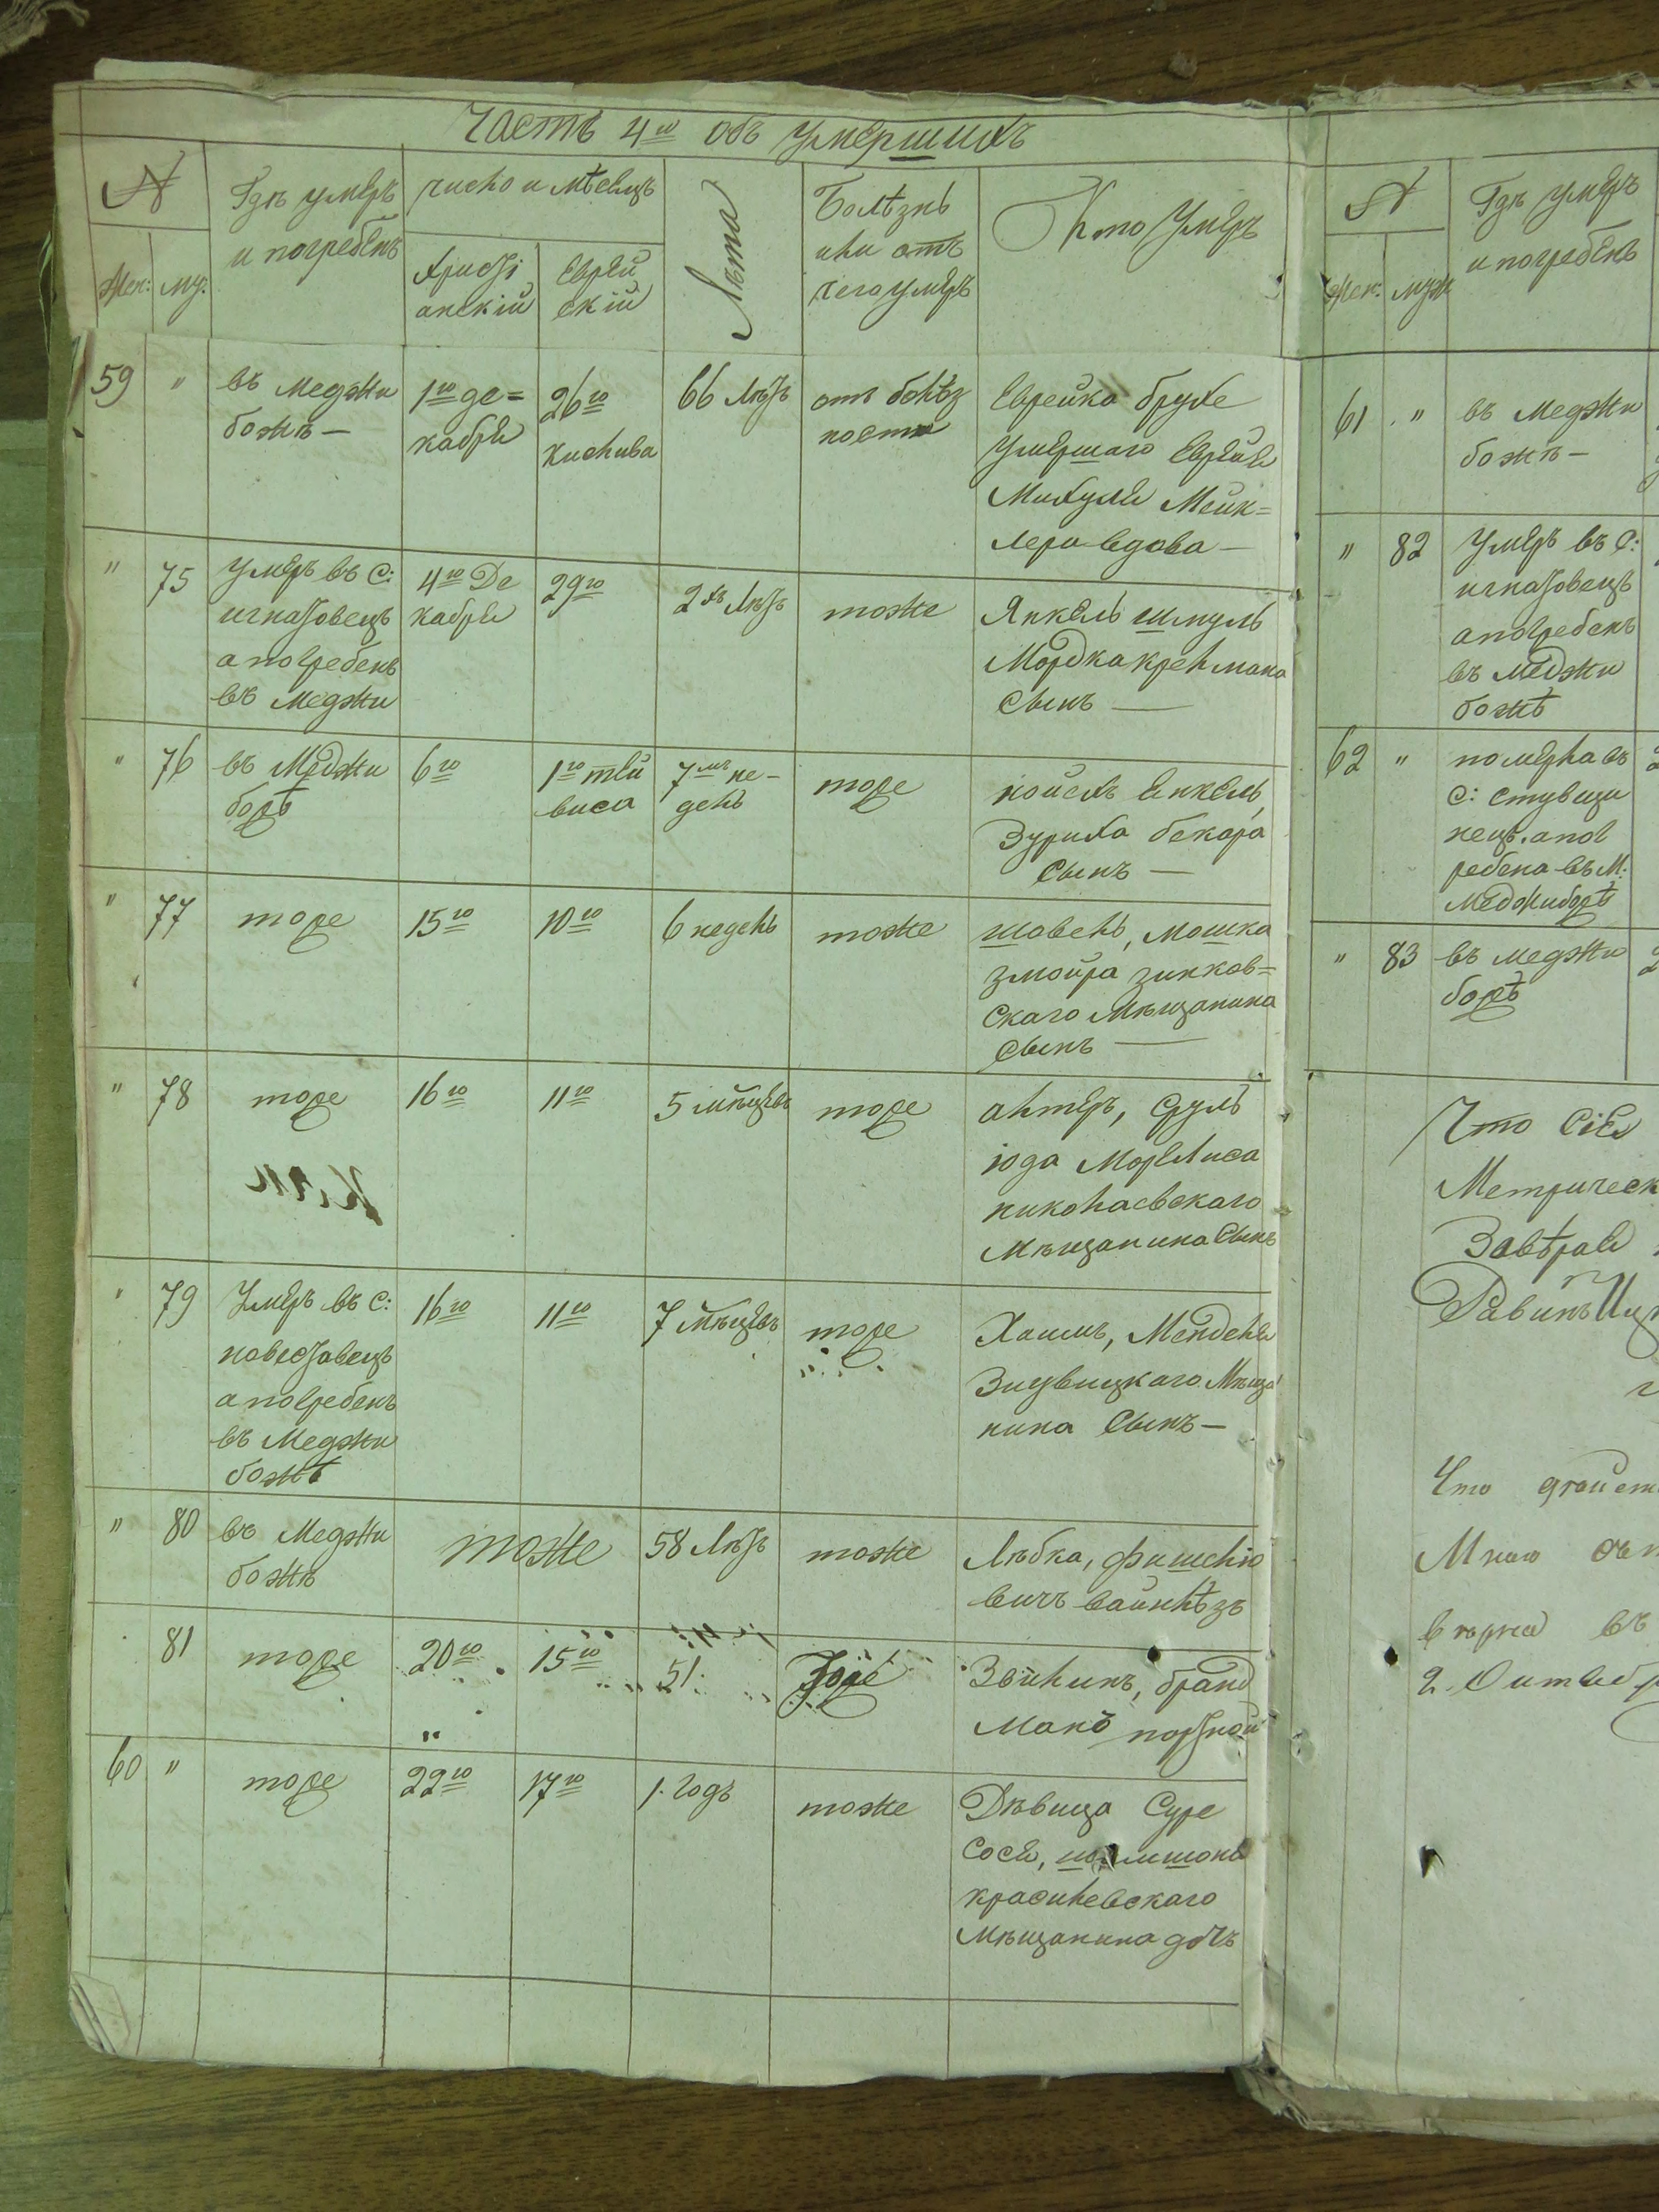 Часть 4ю объ умершихъ
№
Жен: му:
Гдѣ умеръ
и погребенъ
число и мѣсяцъ
Христі
анскій
Еврей
скій
Лѣта
Болѣзнь
или отъ
чего умеръ
Кто Умеръ
59 " въ Меджи
божѣ —
1го де=
кабря
26го
кислива
66 лѣтъ
отъ болѣз
ности
Еврейка брухе
умершаго Еврея
Михуля Меик=
лера вдова —
" 75 умеръ въ с:
игнатовецъ
а погребенъ
въ Меджи
4го Де
кабря
29го
2хъ лѣтъ
тоже
Янкель шмуль
Мордка крельмана
сынъ —
" 76 въ Меджи
божѣ
6го
1го тей
виса
7мъ не-
дель
тоже
койсехъ Енкель,
Зуриха бекара
сынъ —
" 77 тоже
15го
10го
6 недель
тоже
шовель, мошка
змойра зинков=
скаго мѣщанина
сынъ —
" 78 тоже
16го
11го
5 мѣсцевъ
тоже
альтеръ, сруль
юда
николаевскаго
мѣщанина сынъ
" 79 Умеръ въ с:
новоставецъ
а погребенъ
въ Меджи
божѣ
16го
11го
7 мѣсцевъ
тоже
Хаимъ, Менделя
мѣща
нина сынъ —
" 80 въ Меджи
божѣ
тоже
58 лѣтъ
тоже
Лѣбка, фишелю
вичъ
81 тоже
20го
15го
51.
тоже
Зейлинъ, бранд
манъ портной
60 " тоже
22го
17го
1. годъ
тоже
Дѣвица Суре
Сося, шлимшонь
красилевскаго
мѣщанина дочь
№
Жен: муж
Гдѣ умеръ
и погребенъ
61 " въ Меджи
божѣ —
" 82 умеръ въ с:
игнатовецъ
а погребенъ
въ Меджи
божѣ
62 " померла въ
с: ступаци
нецъ. а пог
ребена въ м:
Меджибожѣ
" 83 въ меджи
божѣ
Что сія
Метрическ
Завѣряю
Равинъ
Что
Мною
вѣрна въ
2. Октябр